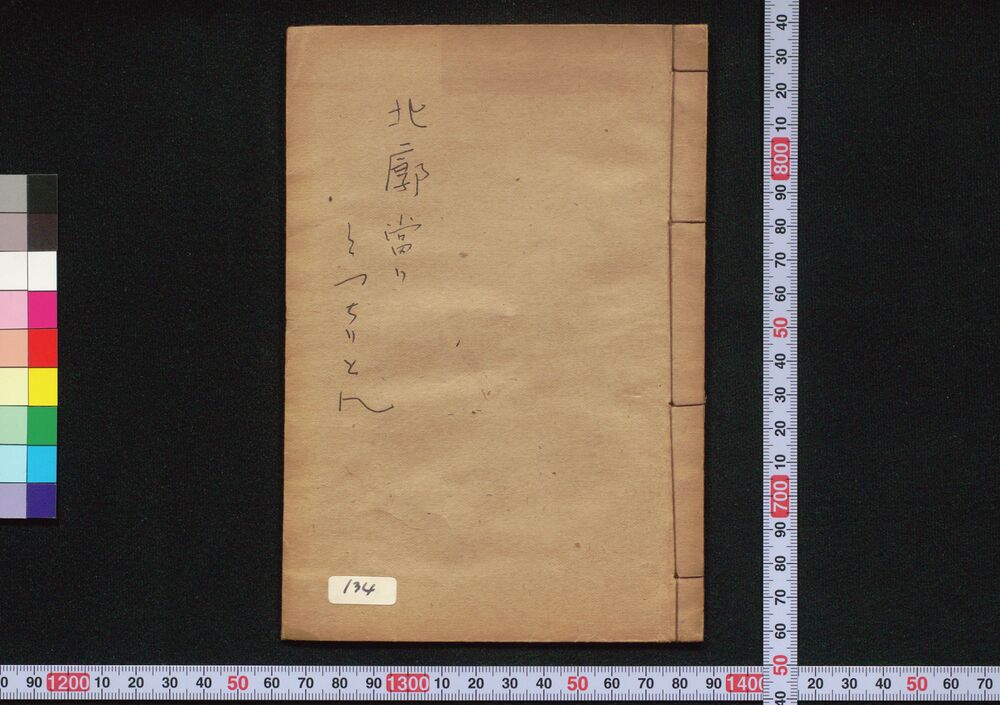 北廓當り
とつちりとん
134
40
30
20
10
800
90
80
70
60
50
40
30
20
10
700
90
80
70
60
50
40
0 90 1200 10 20 30 40 50 60 70 80 90 1300 10 20 30 40 50 60 70 80 90 1400 20 30 40 50 60 70